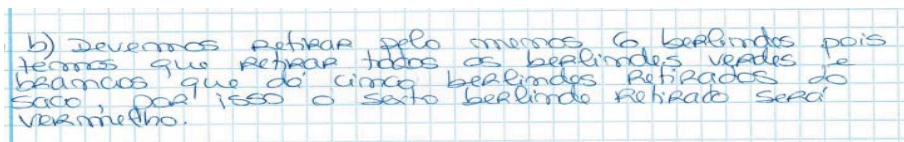 b) Devemos retirar pelo menos 6 berlindes pois
temos que retirar todos os berlindes verdes e
brancos que dá cinco berlindes retirados do
saco, por isso o sexto berlinde retirado será
vermelho.